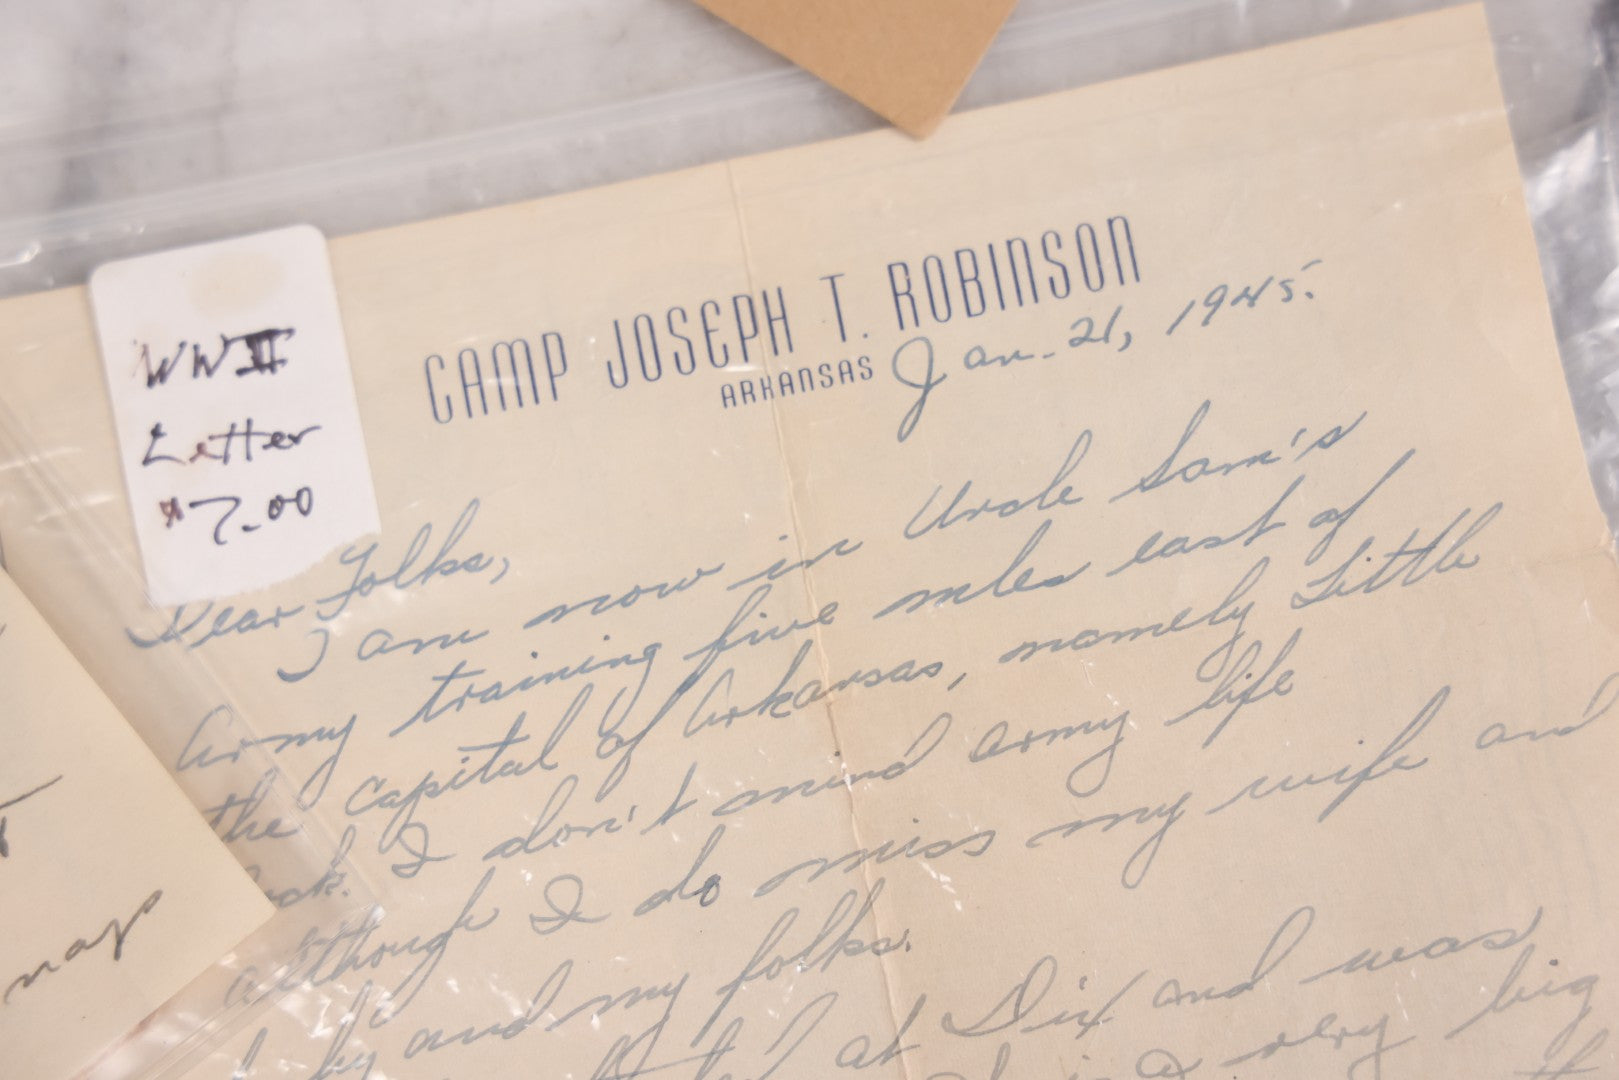 WW II
Letter
$7.00
CAMP JOSEPH T. ROBINSON
ARKANSAS
Jan. 21, 1945.
Dear Folks,
I am now in Uncle Sam's
Army training five miles east of
the capital of Arkansas, namely Little
Rock. I don't mind army life
although I do miss my wife and
and my folks.
at Dix and was
a very big